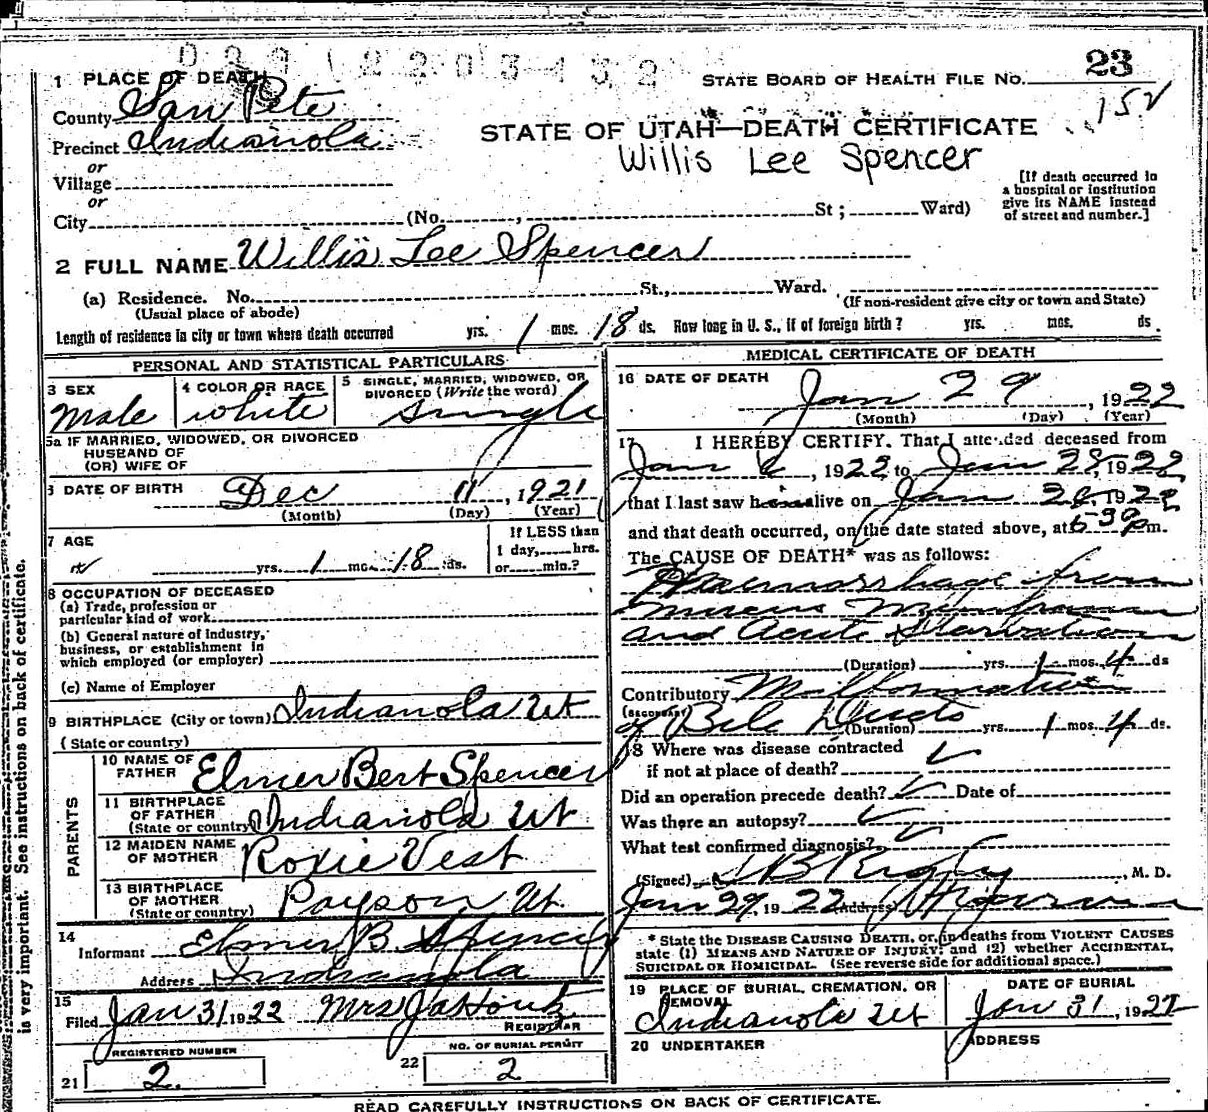 STATE BOARD OF HEALTH FILE NO. 23
1 PLACE OF DEATH
County San Pete
152
Precinct Indianola
STATE OF UTAH—DEATH CERTIFICATE
Willis Lee Spencer
or
Village
or
City (No. , St ; Ward)
[If death occurred in
a hospital or institution
give its NAME instead
of street and number.]
2 FULL NAME Willis Lee Spencer
(a) Residence. No. St., Ward.
(Usual place of abode)
(If non-resident give city or town and State)
Length of residence in city or town where death occurred yrs. 1 mos. 18 ds. How long in U. S., if of foreign birth? yrs. mos. ds.
PERSONAL AND STATISTICAL PARTICULARS
3 SEX
Male
4 COLOR OR RACE
white
5 SINGLE, MARRIED, WIDOWED, OR
DIVORCED (Write the word)
single
5a IF MARRIED, WIDOWED, OR DIVORCED
HUSBAND OF
(OR) WIFE OF
DATE OF BIRTH Dec 11, 1921
(Month) (Day) (Year)
7 AGE
yrs. 1 mo. 18 ds.
If LESS than
1 day, hrs.
or min.?
8 OCCUPATION OF DECEASED
(a) Trade, profession or
particular kind of work
(b) General nature of industry,
business, or establishment in
which employed (or employer)
(c) Name of Employer
9 BIRTHPLACE (City or town) Indianola Ut
(State or country)
PARENTS
10 NAME OF
FATHER Elmer Bert Spencer
11 BIRTHPLACE
OF FATHER
(State or country) Indianola Ut
12 MAIDEN NAME
OF MOTHER Roxie Vest
13 BIRTHPLACE
OF MOTHER
(State or country) Payson Ut
14
Informant Elmer B Spencer
Address Indianola
15
Filed Jan 31 1922 Mrs
REGISTRAR
REGISTERED NUMBER
21 2
NO. OF BURIAL PERMIT
22 2
MEDICAL CERTIFICATE OF DEATH
16 DATE OF DEATH
Jan 29, 1922
(Month) (Day) (Year)
17 I HEREBY CERTIFY, That I attended deceased from
Jan 6, 1922 to Jan 28, 1922
that I last saw him alive on Jan 1922
and that death occurred, on the date stated above, at 5 30 Pm.
The CAUSE OF DEATH* was as follows:
Haemorrhage from
mucus Membrane
and Acute Starvation
(Duration) yrs. 1 mos. 4 ds
Contributory Malformation
(SECONDARY)
of Bile Ducts (Duration) yrs. 1 mos. 4 ds.
18 Where was disease contracted
if not at place of death?
Did an operation precede death? Date of
Was there an autopsy?
What test confirmed diagnosis?
(Signed) , M. D.
Jan 29, 1922 (Address)
* State the DISEASE CAUSING DEATH, or, in deaths from VIOLENT CAUSES
state (1) MEANS AND NATURE OF INJURY; and (2) whether ACCIDENTAL,
SUICIDAL OR HOMICIDAL. (See reverse side for additional space.)
19 PLACE OF BURIAL, CREMATION, OR
REMOVAL
Indianola Ut
DATE OF BURIAL
Jan 31, 1922
20 UNDERTAKER
ADDRESS
READ CAREFULLY INSTRUCTIONS ON BACK OF CERTIFICATE.
is very important. See instructions on back of certificate.